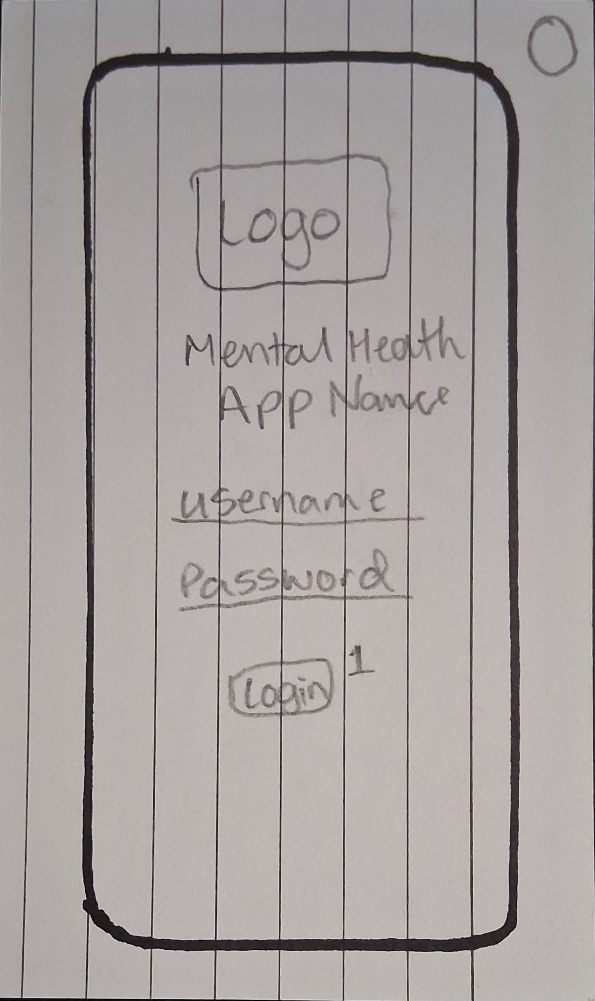 0
Logo
Mental Heath
App Name
username
Password
Login 1